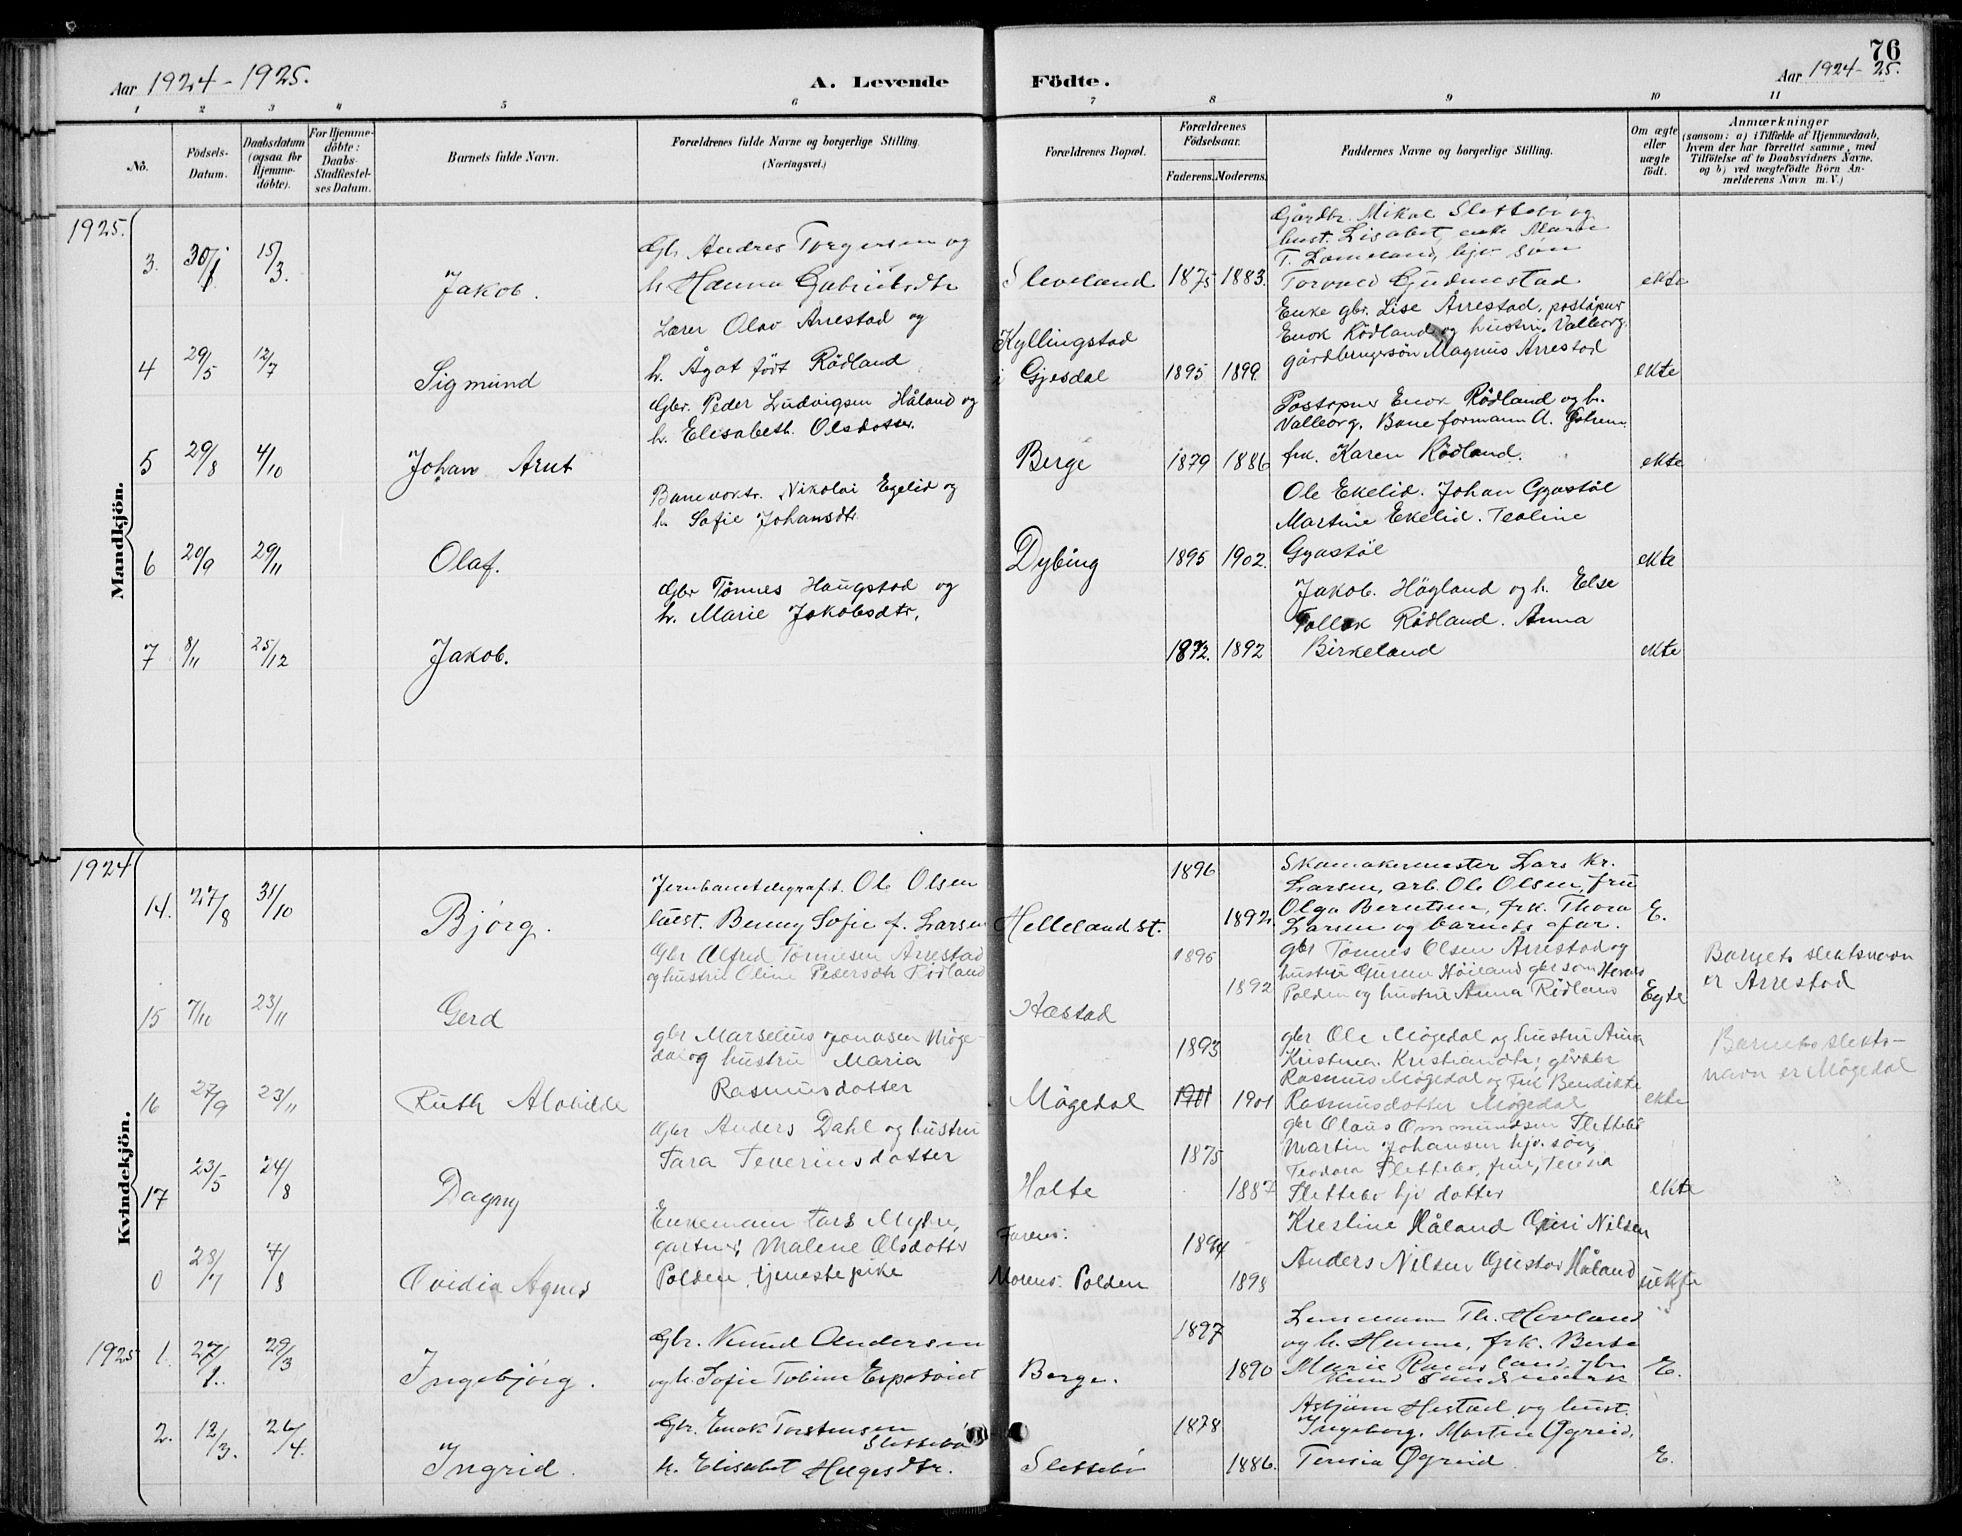 76
Aar 1924-1925.
A. Levende Födte.
Aar 1924-25.
1 2 3 4 5 6 7 8 9 10 11
No.
Födsels-Datum.
Daabsdatum (ogsaa for Hjemme-döbte).
For Hjemme-döbte: Daabs-Stadfæstel-ses Datum.
Barnets fulde Navn.
Forældrenes fulde Navne og borgerlige Stilling. (Næringsvei.)
Forældrenes Bopæl.
Forældrenes Födselsaar.
Faderens. Moderens.
Faddernes Navne og borgerlige Stilling.
Om ægte eller uægte födt.
Anmærkninger
(saasom: a) i Tilfælde af Hjemmedaab, hvem der har forrettet samme, med Tilföielse af to Daabsvidners Navne, og b) ved uægtefödte Börn An-melderens Navn m. V.)
Mandkjön.
1925.
3. 30/1 15/3. Jakob.
Gbr. Andres Torgersen og
h. Hanna Gabrielsdtr
Sleveland 1875 1883.
Gårdbr. Mikal Slettebö og
hust. Lisabet, enke Marie
T. Lomeland, hjv. sön
Torvald Gudmestad
ekte
4 29/5 12/7 Sigmund
Lærer Olav Årrestad og
h. Ågot født Rödland
Kyllingstad
i Gjesdal 1895 1899.
Enke gbr. Lise Årrestad, poståpner
Enok Rödland og hustru Valborg.
gårdbrugersön Magnus Årrestad
ekte
5 29/8 4/10 Johan Arnt
Gbr. Peder Ludvigsen Håland og
h. Elisabeth Olsdotter
Berge 1879 1886
Postopner Enok Rödland og h.
Valborg. Baneformann A.
frk. Karen Rödland.
ekte
6 20/9 29/11 Olaf.
Banevoktr. Nikolai Egelid og
h. Sofie Johansdtr
Dybing 1895 1902.
Ole Ekelid. Johan Gyastöl
Martine Ekelid. Teoline
Gyastöl
ekte
7 8/11 25/12 Jakob.
Gbr Tönnes Haugstad og
h. Marie Jakobsdtr.
1892. 1892
Jakob. Högland og h. Else
Tollak Rödland. Anna
Birkeland
ekte
Kvindekjön.
1924
14. 27/8 31/10 Bjørg.
Jernbanetelegraft. Ole Olsen
hust. Benny Sofie f. Larsen
Helleland st. 1896 1892.
Skomakermester Lars Kr.
Larsen, arb. Ole Olsen, fru
Olga Berntsen, frk. Thora
Larsen og barnets far.
E.
15 7/10 23/11 Gerd
Gbr Alfred Tönnesen Årrestad
og hustru Oline Pedersdtr Rödland
Hæstad 1895 1892
gbr Tønnes Olsen Årrestad og
hustru Guren Höiland gbr som
Polden og hustru Anna Rödland
Egte
Barnets slektsnavn
er Årrestad
16 27/9 23/11 Ruth Alvhilde
gbr Marselius Jonasen Möge-
dal og hustru Maria
Rasmusdotter
Mögedal 1893 1901 1901
gbr Ole Mögedal og hustru Anna
Kristina Kristiandtr; gårdbr
Rasmus Mögedal og frk Bendikte
Rasmusdotter Mögedal
ekte
Barnets slekts-
navn er Mögedal
17 23/5 24/8 Dagny
Gbr Anders Dahl og hustru
Tara Teverinsdotter
Holte 1875 1887
gbr Olaus Ommundsen Slettebö
Martin Johansen hjv. sön,
Teodora Slettebö, frue, Teresia
Slettebö hjv dotter
ekte
0 23/7 7/8 Ovidia Agnes
Enkemann Lars Myhre,
gartner, Malene Olsdotter
Polden, tjenestepike
Farens:
Morens: Polden 1894 1898
Krestine Håland Guri Nilsen
Anders Nilsen Gustav Håland
uekte
1925
1. 27/1. 29/3 Ingebjörg.
Gbr. Knud Andersen
og h. Sofie Tobine Espetveit
Berge. 1897 1890
Lensmann Th. Hovland
og h. Hanne, frk. Berte
Marie Ramsland, gbr
Knud Sandsmark
E.
2. 12/3. 26/4. Ingrid.
Gbr. Enok Torstensen
Slettebö
h. Elisabet Helgesdtr.
Slettebö 1878 1886.
Asbjørn Hestad og hust.
Ingeborg. Martin Øgreid.
Teresia Øgreid.
E.